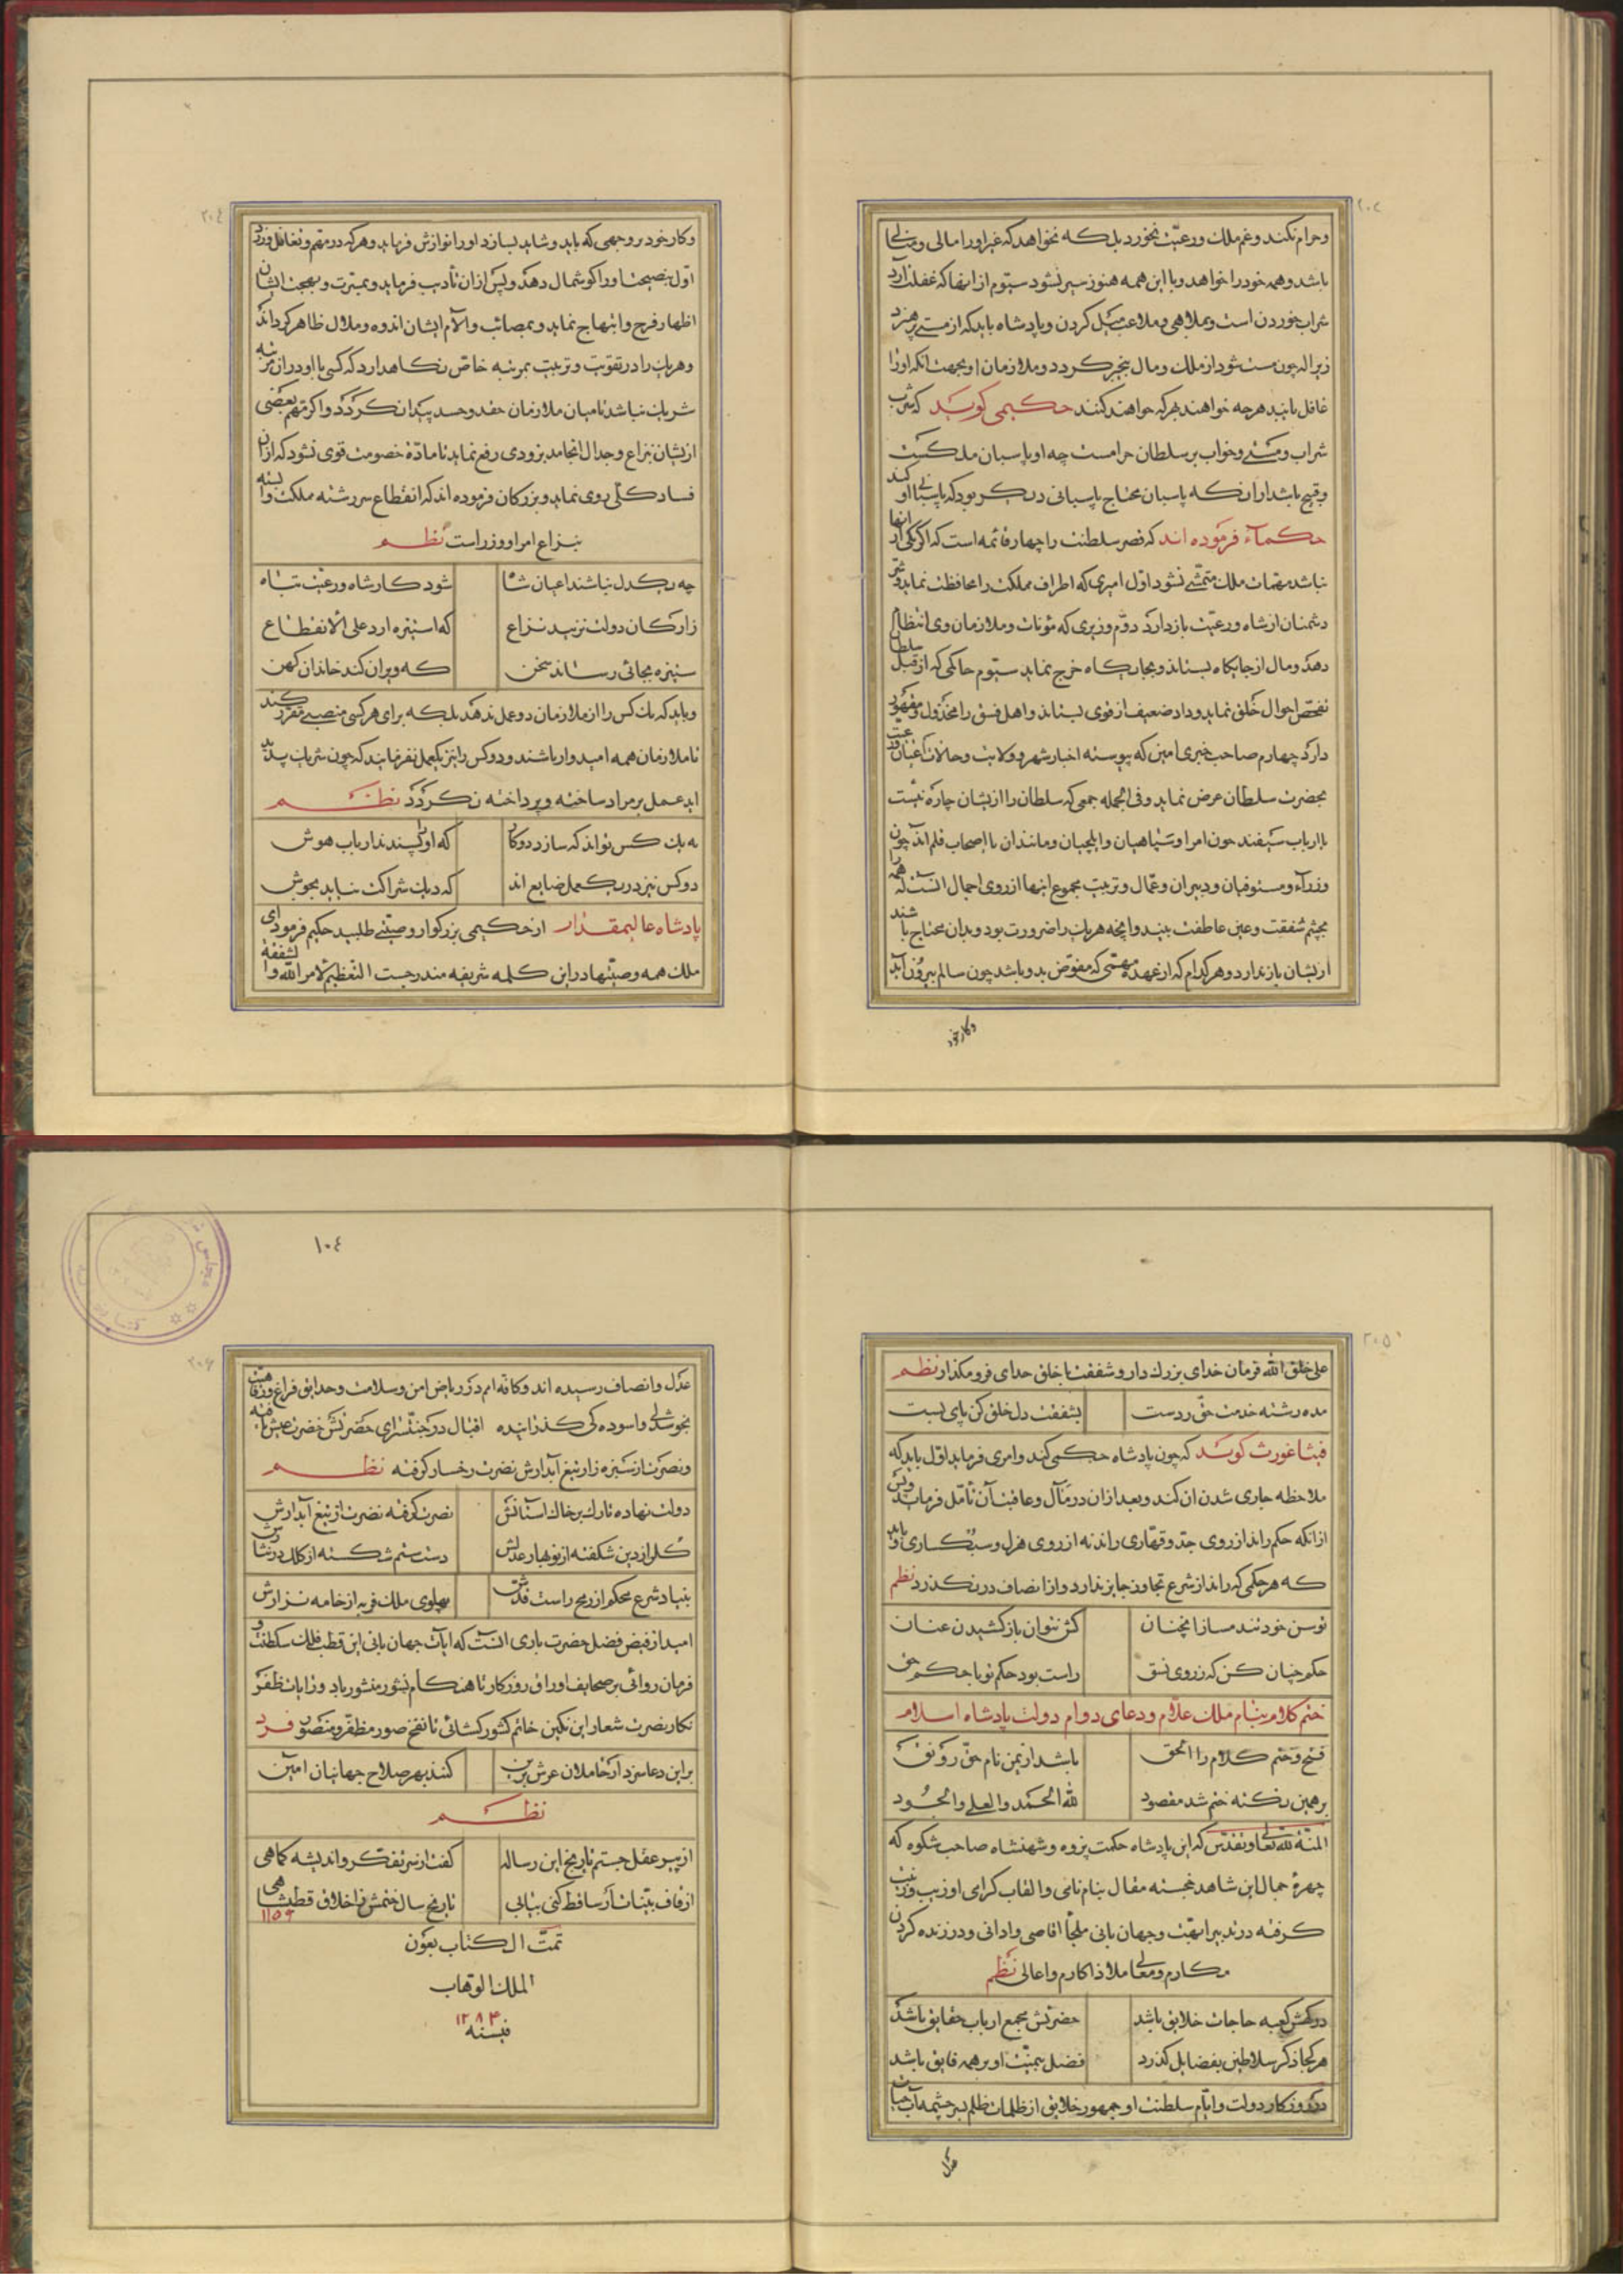 وحرام نکند وغم ملک ورعیّت نخورد بلکه نخواهد که غیر او را مالی ومنالی
باشد وهمه خود را خواهد وبا این همه هنوز سیر نشود سیّوم از انها که غفلت آرد
شراب خوردن است وبملاهی وملاعب میل کردن وپادشاه باید که از مستی پرهیزد
زیرا که چون مست شود از ملک ومال بیخبر کردد وملازمان او بجهت انکه او را
غافل یابند هرچه خواهند هرکه خواهند کنند حکیمی کوید که شرب
شراب ومستی وخواب بر سلطان حرامست چه او پاسبان ملکست
وقبیح باشد از انکه پاسبان محتاج پاسبانی دیگر بود که پاسبانی او کند
حکمآء فرموده اند که قصر سلطنت را چهار قائمه است که اگر یکی از انها
نباشد مهمّات ملک متمشّی نشود اوّل امیری که اطراف مملکت را محافظت نماید وشرّ
دشمنان از شاه ورعیّت باز دارد دوّم وزیری که مؤنات وملازمان وی انتظام
دهد ومال از جایکاه بستاند وبجایگاه خرج نماید سیّوم حاکمی که از قبل سلطان
تفحّص احوال خلق نماید وداد ضعیف از قوی بستاند واهل فسق را مخذول ومقهور
دارد چهارم صاحب خبری امین که پیوسته اخبار شهر وولایت وحالات اعیان ورعیّت
بحضرت سلطان عرض نماید وفی الجمله جمعی که سلطان را ازیشان چاره نیست
یا ارباب سیفند چون امرا وسپاهیان وایلچیان ومانند ان یا اصحاب قلم اند چون
وزرآء ومستوفیان ودبیران وعمّال وتربیت مجموع اینها از روی اجمال انست که همه را
بچشم شفقت وعین عاطفت بیند وانچه هریک را ضرورت بود وبدان محتاج باشند
ازیشان باز ندارد وهرکدام که از عهده مهمّی که مفوّض بدو باشد چون سالم بیرون آید
وکار خود
٢٠٤
وکار خود بر وجهی که باید وشاید بسازد او را نوازش فرماید وهرکه در مهم تغافل ورزد
اوّل بنصیحت او را کوشمال دهد وپس از ان تأدیب فرماید وبمسرّت وبهجت ایشان
اظهار فرح وابتهاج نماید وبمصائب وآلام ایشان اندوه وملال ظاهر کرداند
وهریک را در تقویت وتربیت بمرتبه خاصّ نکاهدارد که کسی با او در ان مرتبه
شریک نباشد تا میان ملازمان حقد وحسد پیدا نکردد واکر مهمّ بعضی
ازیشان بنزاع وجدال انجامد بزودی رفع نماید تا مادّه خصومت قوی نشود که از ان
فساد کلّی روی نماید وبزرکان فرموده اند که انقطاع سررشته مملکت وابسته
بنزاع امرا ووزراست نظم
چه یکدل نباشند اعیان شاه
شود کار شاه ورعیّت تباه
ز ارکان دولت نزیبد نزاع
که استیزه ارد علی الانقطاع
ستیزه بجائی رساند سخن
که ویران کند خاندان کهن
وباید که یک کس را از ملازمان دو عمل ندهد بلکه برای هر کسی منصبی مقرّر کند
تا ملازمان همه امیدوار باشند ودو کس را نیز یکعمل نفرمایند که چون شریک پدید
اید عمل بر مراد ساخته وپرداخته نکردد نظم
نه یک کس تواند که سازد دو کار
که او را پسندند ارباب هوش
دو کس نیز در یکعمل ضایع اند
که دیک شراکت نیاید بجوش
پادشاه عالیمقدار از حکیمی بزرکوار وصیّتی طلبید حکیم فرمود ای
ملک همه وصیّتها در این کلمه شریفه مندرجست التعظیم لامر الله والشفقة
٢٠٥
علی خلق الله فرمان خدای بزرک دار وشفقت با خلق خدای فرو مکذار نظم
مده رشته خدمت حق ز دست
بشفقت دل خلق کن پای بست
فیثاغورث کوید که چون پادشاه حکمی کند وامری فرماید اوّل باید که
ملاحظه جاری شدن ان کند وبعد از ان در مآل وعاقبت آن تأمّل فرماید وپس
از انکه حکم راند از روی جدّ وقهّاری راند نه از روی هزل وسبکساری وباید
که هر حکمی که راند از شرع تجاوز جایز ندارد واز انصاف در نکذرد نظم
توسن خود تند مساز انچنان
کش نتوان باز کشیدن عنان
حکم چنان کن که ز روی نسق
راست بود حکم تو با حکم حق
ختم کلام بنام ملک علّام ودعای دوام دولت پادشاه اسلام
فتح وختم کلام را الحق
باشد از یمن نام حق رونق
بر همین نکته ختم شد مقصود
لله الحمد والعلی والجود
المنّة لله تعالی وتقدّس که این پادشاه حکمت پژوه وشهنشاه صاحب شکوه که
چهرهٔ جمال این شاهد خجسته مقال بنام نامی والقاب کرامی او زیب وزینت
کرفته در تدبیر ابهّت وجهان بانی ملجأ اقاصی وادانی ودر زنده کردن
مکارم ومعالی ملاذ اکارم واعالی نظم
درکهش کعبه حاجات خلایق باشد
حضرتش مجمع ارباب حقایق باشد
هر کجا ذکر سلاطین بفضایل کذرد
فضل بیمنّت او بر همه فایق باشد
در روزکار دولت وایّام سلطنت او جمهور خلایق از ظلمات ظلم بسرچشمه آب حیات
عدل
١٠٤
٢٠٦
عدل وانصاف رسیده اند وکافه امم در ریاض امن وسلامت وحدایق فراغ ورفاهیّت
بخوشدلی واسوده کی کذرانیده اقبال در جنّتسرای حضرتش خضرت عیش یافته
ونصرت از سبزه زار تیغ آبدارش نضرت رخسار کرفته نظم
دولت نهاده تارک بر خاک استانش
نصرت کرفته نضرت از تیغ آبدارش
کلزار دین شکفته از نوبهار عدلش
دست ستم شکسته از کلک درنثارش
بنیاد شرع محکم از رمح راست قدش
پهلوی ملک فربه از خامه نزارش
امید از فیض فضل حضرت باری انست که ایات جهان بانی این قطب فلک سلطنت و
فرمان روائی بر صحایف اوراق روزکار تا هنکام نشور منشور باد ورایات ظفر
نکار نصرت شعار این نکین خاتم کشور کشائی تا نفخ صور مظفّر ومنصور فرد
بر این دعا سزد ار حاملان عرش برین
کنند بهر صلاح جهانیان آمین
نظم
از پیر عقل جستم تاریخ این رساله
کفت از سر تفکّر واندیشه کماهی
از قاف بیّنات ار ساقط کنی بیابی
تاریخ سال ختمش ز اخلاق قطبشاهی
تمّت الکتاب بعون
الملک الوهّاب
فیسنه ١٢٨٤